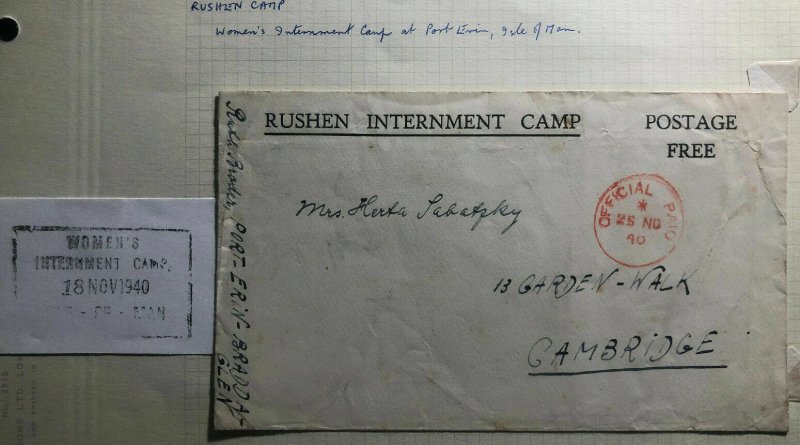 RUSHEN CAMP
Women's Internment Camp at Port Erin, Isle of Man.
RUSHEN INTERNMENT CAMP
POSTAGE
FREE
OFFICIAL PAID
*
25 NO
40
Mrs. Herta Sabatzky
13 GARDEN-WALK
CAMBRIDGE
PORT-ERIN-BRADDA
GLEN
WOMEN'S
INTERNMENT CAMP,
18 NOV 1940
MAN